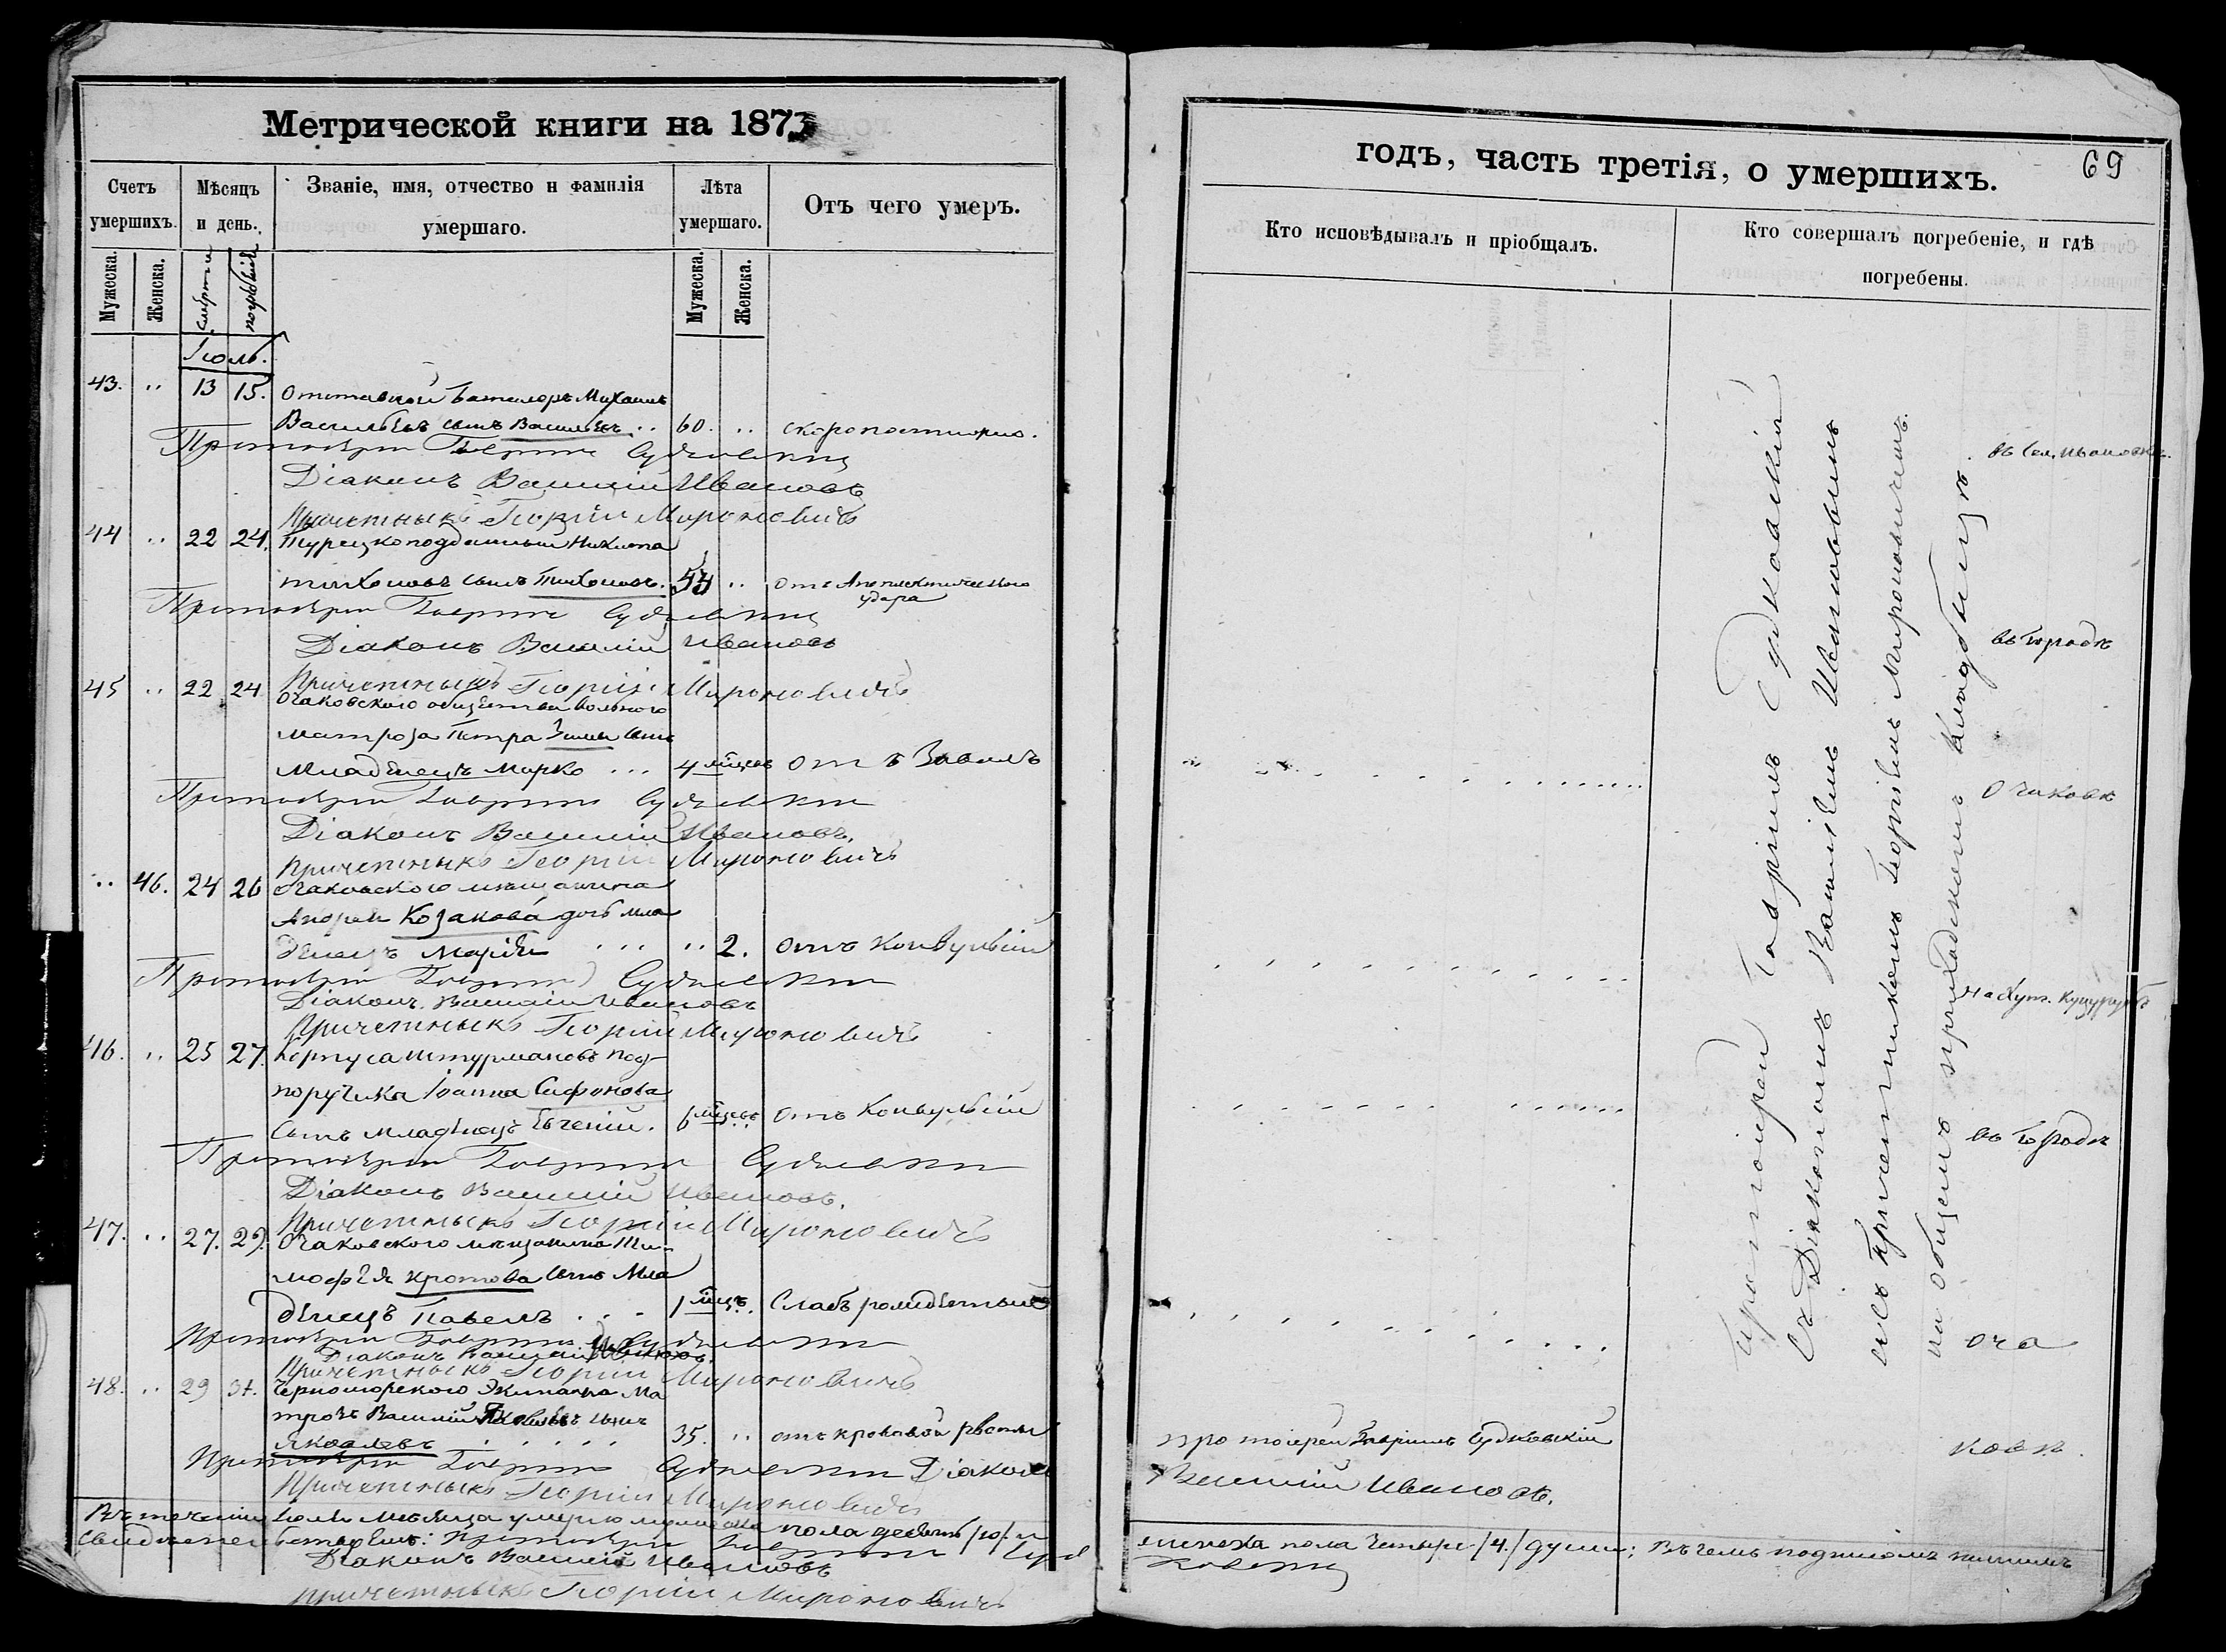 Метрической книги на 1873
Счетъ умершихъ.
Мѣсяцъ и день.
Званіе, имя, отчество и фамилія умершаго.
Лѣта умершаго.
Отъ чего умеръ.
Мужеска.
Женска.
смерти
погребенія
Мужеска.
Женска.
Іюль.
43. .. 13 15. Отставной Баталеръ Михаилъ
Васильевъ сынъ Васильевъ .. 60. .. скоропостижно.
Протоіерей Гавріилъ Судковскій
Діаконъ Василій Ивановъ
Причетныкъ Георгій Мироновичъ
44 .. 22 24. Турецкоподданный Никита
Тихоновъ сынъ Тихоновъ. .. отъ Апоплектическаго
удара
Протоіерей Гавріилъ Судковскій
Діаконъ Василій Ивановъ
Причетныкъ Георгій Мироновичъ
45 .. 22 24 Очаковского общества вольного
матроза Петра Зимы сынъ
Младенецъ Марко ... 4 мѣцев отъ
Протоіерей Гавріилъ Судковскій
Діаконъ Василій Ивановъ.
Причетныкъ Георгій Мироновичъ
.. 46. 24 26 Очаковского мѣщанина
Андрея Козакова дочь мла
денецъ Марія ... .. 2. отъ Конвульсій
Протоіерей Гавріилъ Судковскій
Діаконъ Василій Ивановъ
Причетныкъ Георгій Мироновичъ
46. .. 25 27. Корпуса штурмановъ под-
поручика Іоанна Сафонова
сынъ младенецъ Евгеній. 6 мѣцевъ.. отъ Конвульсій
Протоіерей Гавріилъ Судковскій
Діаконъ Василій Ивановъ.
Причетныкъ Георгій Мироновичъ
47. .. 27. 29. Очаковского мѣщанина Ти-
мофея Кротова сынъ Мла
денецъ Павелъ ... 1 мѣцъ. Слаборожденный
Протоіерей Гавріилъ Судковскій
Діаконъ Василій Ивановъ.
Причетныкъ Георгій Мироновичъ
48. .. 29 31. Черноморского Экипажа Ма
трозъ Василій Яковлевъ сынъ
Яковлевъ ..... 35. .. отъ кровавой рвоты
Протоіерей Гавріилъ Судковскій Діаконъ
Причетныкъ Георгій Мироновичъ
Въ теченіи Іюля мѣсяца умерло мужеска пола десять /10/ и
Свидѣтельствуемъ: Протоіерей Гавріилъ Суд
Діаконъ Василій Ивановъ
Причетныкъ Георгій Мироновичъ
годъ, часть третія, о умершихъ.
69
Кто исповѣдывалъ и пріобщалъ.
Кто совершалъ погребеніе, и гдѣ погребены.
Протоіерей Гавріилъ Судковскій
съ Діакономъ Василіемъ Ивановымъ
и съ Причетникомъ Георгіемъ Мироновичемъ
на общемъ приходскомъ кладбищѣ.
въ сел. Ивановкѣ.
въ городѣ
Очаковѣ
на хут. Куцурубѣ
въ городѣ
Оча
ковѣ.
Протоіерей Гавріилъ Судковскій
Василій Ивановъ.
женска пола четыре /4/ души; Въ чемъ подписомъ нашимъ
ковскій